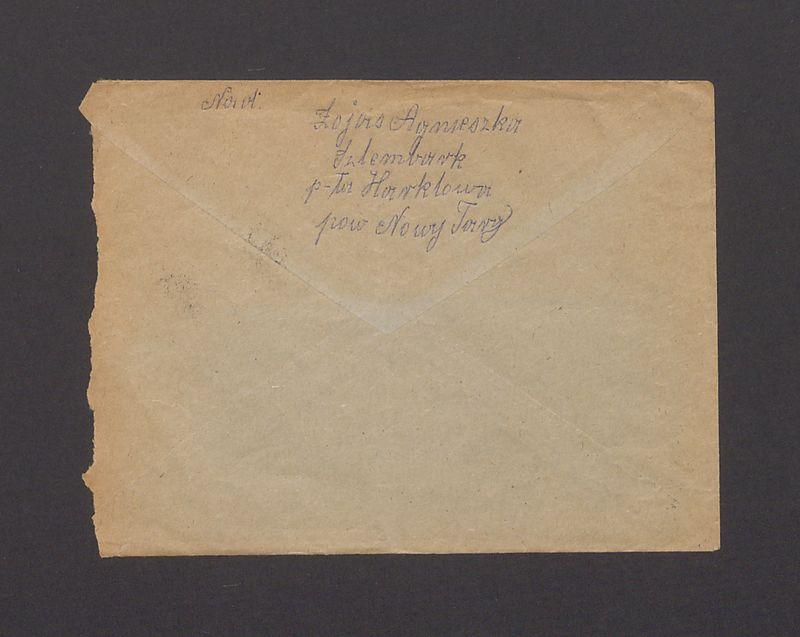 Nad.
Łojas Agnieszka
Szlembark
p-ta Harklowa
pow Nowy Targ